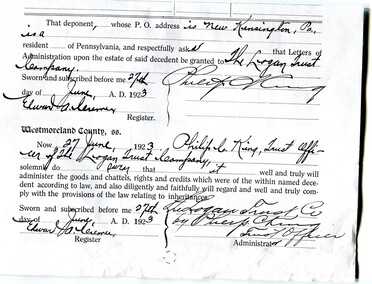 That deponent, whose P. O. address is New Kensington, Pa.,
is a
resident of Pennsylvania, and respectfully asks that Letters of
Administration upon the estate of said decedent be granted to The Logan Trust
Company.
Sworn and subscribed before me 27th
day of June, A. D. 1923
Philip C King
Edward
Register.
Westmoreland County, ss.
Now 27 June, 1923 Philip C. King, Trust Offi-
cer of The Logan Trust Company,
solemnly do swear that it well and truly will
administer the goods and chattels, rights and credits which were of the within named dece-
dent according to law, and also diligently and faithfully will regard and well and truly com-
ply with the provisions of the law relating to inheritances.
Sworn and subscribed before me 27th
day of June A. D. 1923
Edward
Register
The Logan Trust Co
by Philip C King
Trust Officer
Administrator